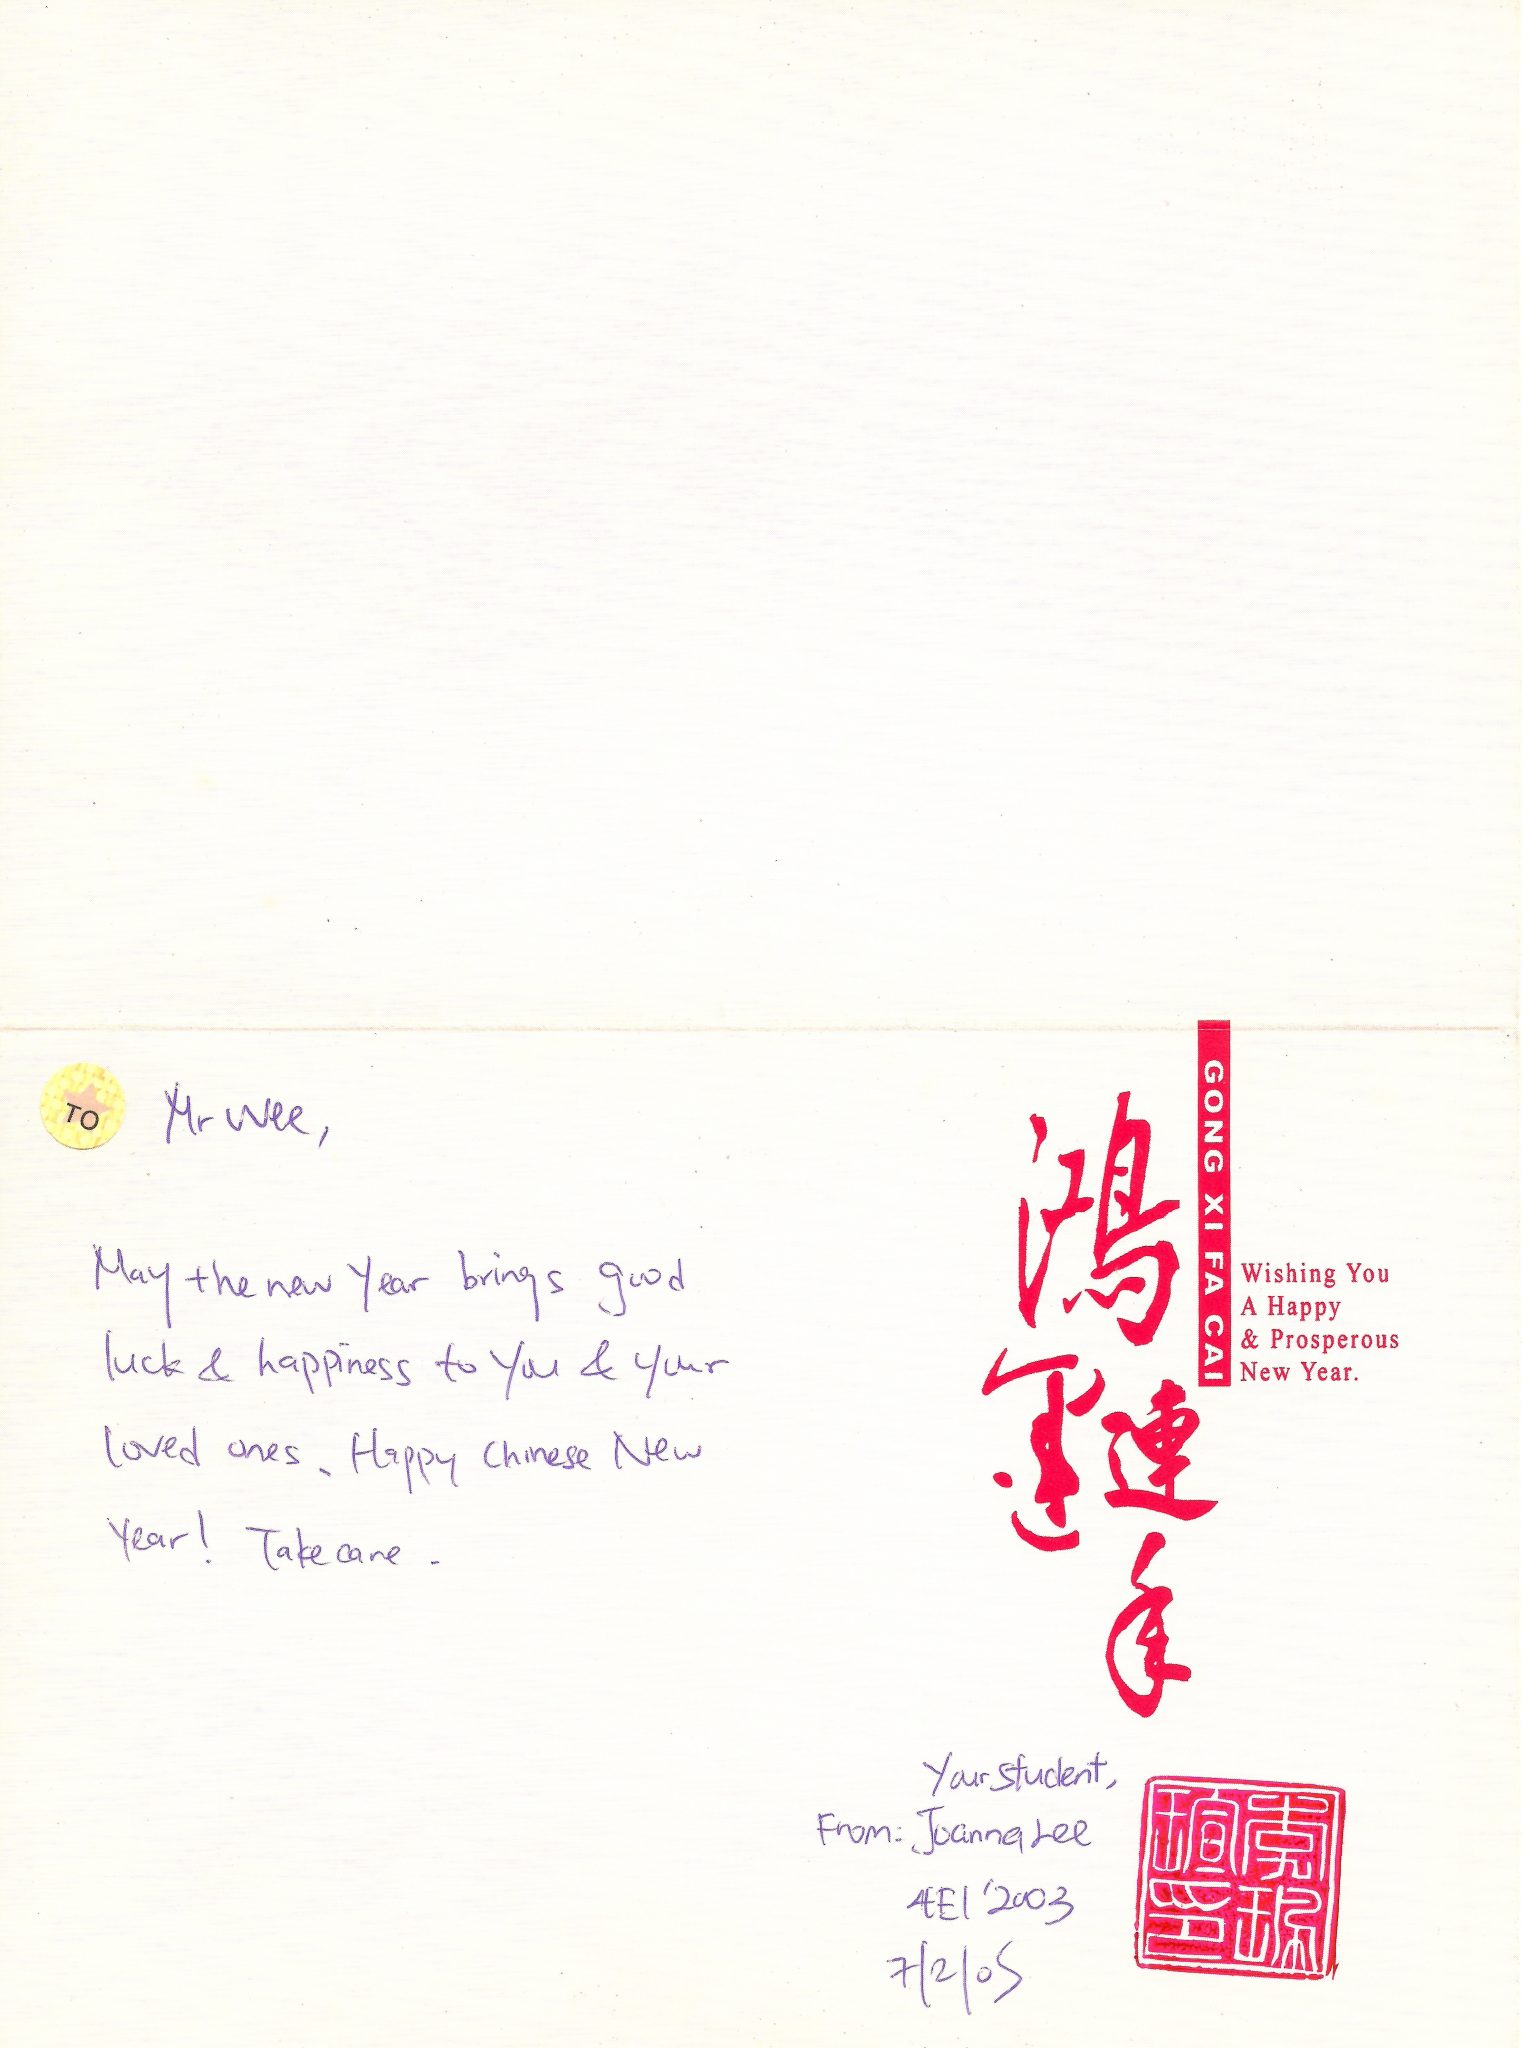 TO Mr Wee,
May the new year brings good
luck & happiness to you & your
loved ones. Happy Chinese New
Year! Take care.
GONG XI FA CAI
鴻
運
連
年
Wishing You
A Happy
& Prosperous
New Year.
Your student,
From: Joanna Lee
4E1 '2003
7/2/05